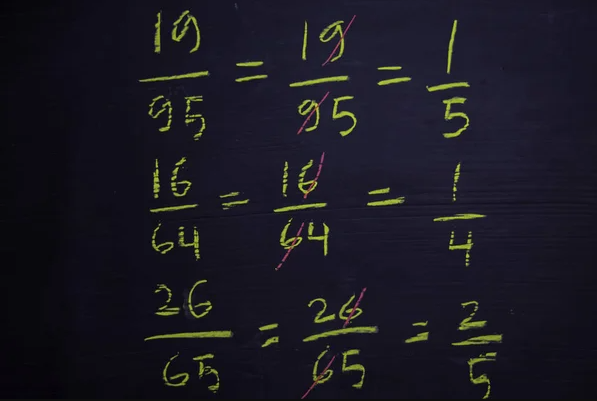 19/95 = 19/95 = 1/5
16/64 = 16/64 = 1/4
26/65 = 26/65 = 2/5